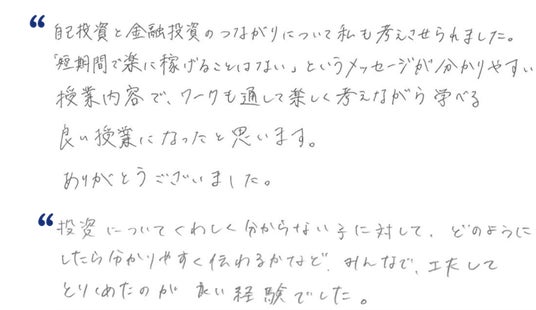 自己投資と金融投資のつながりについて私も考えさせられました。
「短期間で楽に稼げることはない」というメッセージが分かりやすい
授業内容で、ワークも通して楽しく考えながら学べる
良い授業になったと思います。
ありがとうございました。
投資についてくわしく分からない子に対して、どのように
したら分かりやすく伝わるかなど、みんなで、工夫して
とりくめたのが良い経験でした。